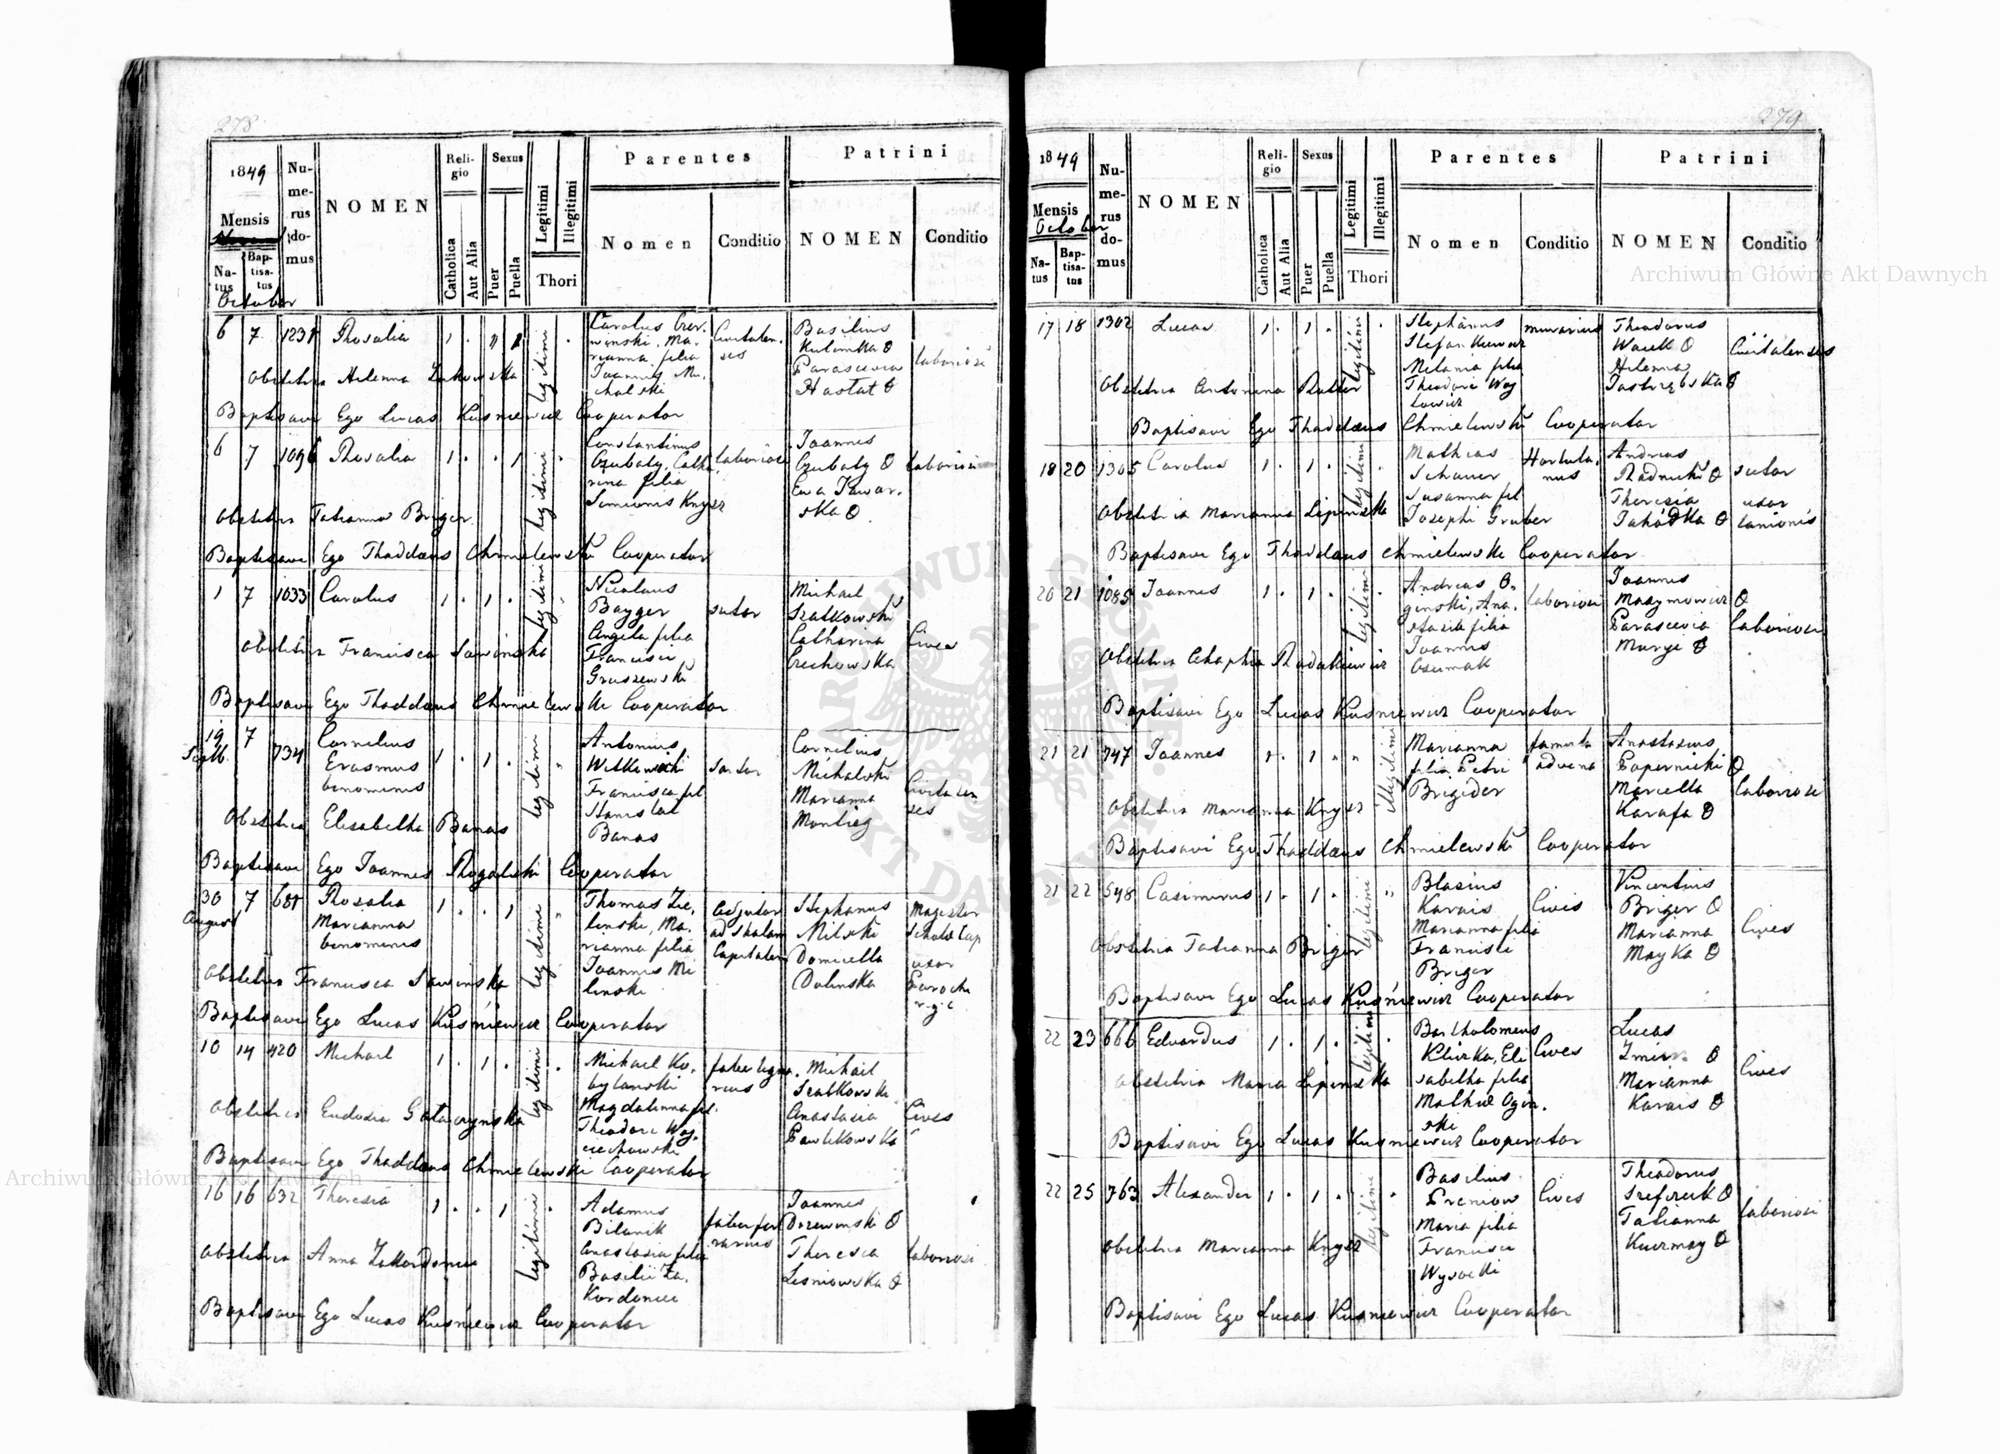 278
1849
Numerus domus
NOMEN
Religio
Sexus
Legitimi
Illegitimi
Parentes
Patrini
Mensis
Natus
Baptisatus
Catholica
Aut Alia
Puer
Puella
Thori
Nomen
Conditio
NOMEN
Conditio
October
6 7 Rosalia 1 . 1 legitimi
Marianna filia
Joannis
Basilius
Kulinka
Parascevia
laboriosi
Obstetrix Helenna
Baptisavi Ego Lucas Kuśniewicz Cooperator
6 7 1096 Rosalia 1 . . 1 legitimi
Constantinus
Czubaty, Catha
rina filia
Simeonis Knysz
laboriosi
Joannes
Czubaty
Ewa
laboriosi
Obstetrix Tatianna Briger
Baptisavi Ego Thaddaeus Chmielewski Cooperator
1 7 1033 Carolus 1 . 1 . legitimi
Nicolaus
Bayger
Angela filia
Francisci
Gruszewski
sutor
Michael
Szatkowski
Catharina
Czechowska
Cives
Obstetrix Francisca Sawinska
Baptisavi Ego Thaddaeus Chmielewski Cooperator
19 Septb. 7 734
Cornelius
Erasmus
binominis
1 . 1 . legitimi
Antonius
Witkowski
Francisca fil
Stanislai
Banas
sutor
Cornelius
Michalski
Marianna
Civitatenses
Obstetrix Elisabetha Banas
Baptisavi Ego Joannes Rogalski Cooperator
30 August 7
Rosalia
Marianna
binominis
1 . . 1 legitimi
Thomas Zie
linski, Ma
rianna filia
Joannis Mi
linski
Adjutor
ad Scholam
Capitalem
Stephanus
Milski
Domicella
Dolinska
Magister
uxor
Parochi
r. g. c
Obstetrix Francisca Sawinska
Baptisavi Ego Lucas Kuśniewicz Cooperator
10 14 420 Michael 1 . 1 . legitimi
Michael Ko
bylanski
Magdalenna fil.
Theodori Woj
ciechowski
faber ligna
rius
Michael
Szatkowski
Anastasia
Pawlikowska
Cives
Obstetrix Eudosia
Baptisavi Ego Thaddaeus Chmielewski Cooperator
16 16 632 Theresia 1 . . 1 legitimi
Adamus
Bilanik
Anastasia filia
Basilii Za
Kordoniec
faber fer
rarius
Joannes
Drzewinski
Theresia
Lesniowska
laboriosi
Obstetrix Anna Zakordoniec
Baptisavi Ego Lucas Kuśniewicz Cooperator
279
1849
Numerus domus
NOMEN
Religio
Sexus
Legitimi
Illegitimi
Parentes
Patrini
Mensis
October
Natus
Baptisatus
Catholica
Aut Alia
Puer
Puella
Thori
Nomen
Conditio
NOMEN
Conditio
17 18 1302 Lucas 1 . 1 . legitimi
Stephanus
Stefankiewicz
Melania filia
Theodori Woj
towicz
murarius
Theodorus
Helenna
Jastrzębska
Civitatenses
Obstetrix Antonina
Baptisavi Ego Thaddaeus Chmielewski Cooperator
18 20 1305 Carolus 1 . 1 . legitimi
Mathias
Schauer
Susanna fil
Josephi Gruber
Hortula
nus
Andreas
Theresia
sutor
uxor
lanionis
Obstetrix Marianna Lipinska
Baptisavi Ego Thaddaeus Chmielewski Cooperator
20 21 1085 Joannes 1 . 1 . legitimi
Andreas O
ginski, Ana
stasia filia
Joannis
laboriosi
Joannes
Maxymowicz
Parascevia
laboriosi
Obstetrix Agaphia Rudakiewicz
Baptisavi Ego Lucas Kuśniewicz Cooperator
21 21 747 Joannes 1 . 1 illegitimi
Marianna
filia Petri
Brigider
famula
advena
Anastasius
Papernicki
Marcella
Karafa
laboriosi
Obstetrix Marianna Knysz
Baptisavi Ego Thaddaeus Chmielewski Cooperator
21 22 548 Casimirus 1 . 1 . legitimi
Blasius
Karais
Marianna filia
Francisci
Briger
Cives
Vincentius
Briger
Marianna
Mayka
Cives
Obstetrix Tatianna Briger
Baptisavi Ego Lucas Kuśniewicz Cooperator
22 23 666 Eduardus 1 . 1 . legitimi
Bartholomeus
Klizka, Eli
sabetha filia
Mathiae Ogin
ski
Cives
Lucas
Marianna
Karais
Cives
Obstetrix Maria Lipinska
Baptisavi Ego Lucas Kuśniewicz Cooperator
22 25 763 Alexander 1 . 1 . legitimi
Basilius
Maria filia
Francisci
Wysocki
Cives
Theodorus
Tatianna
laboriosi
Obstetrix Marianna Knysz
Baptisavi Ego Lucas Kuśniewicz Cooperator
Archiwum Główne Akt Dawnych
Archiwum Główne Akt Dawnych
ARCHIWUM GŁÓWNE AKT DAWNYCH